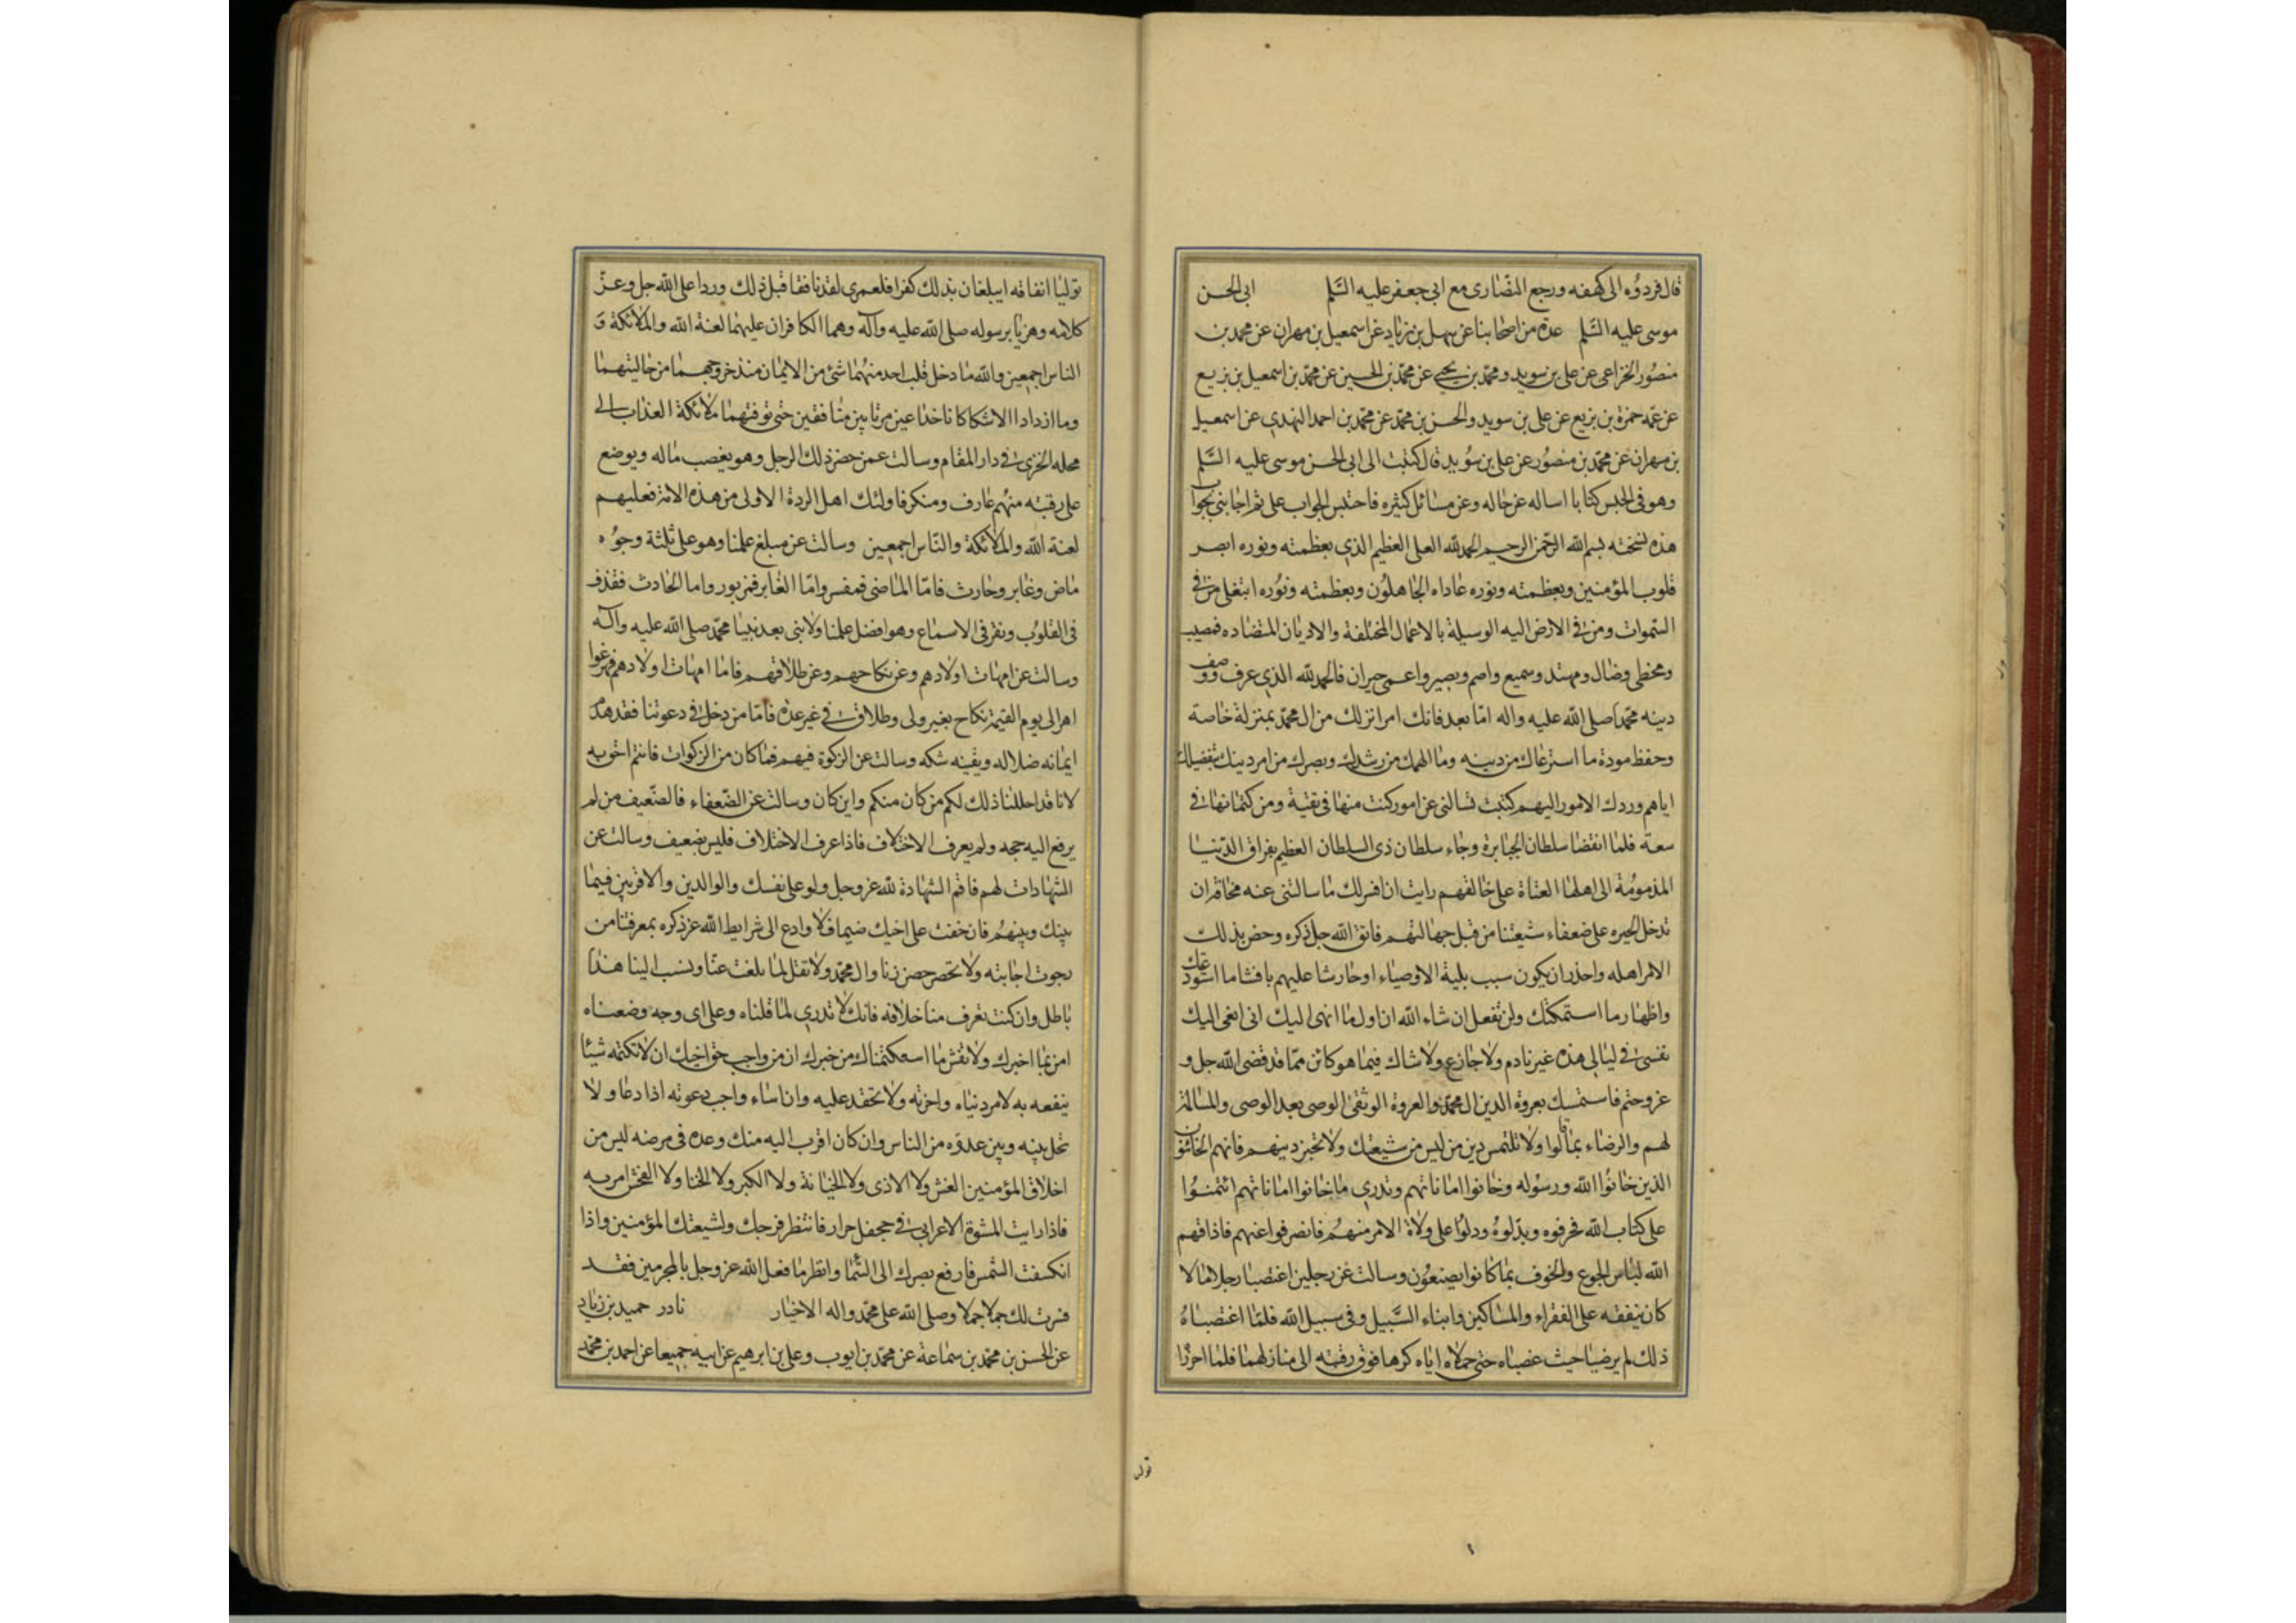 قال فردوه الى كهفه ورجع النصارى مع ابى جعفر عليه السلم ابى الحسن
موسى عليه السلم عدة من اصحابنا عن سهل بن زياد عن اسمعيل بن مهران عن محمد بن
منصور الخزاعى عن على بن سويد ومحمد بن يحيى عن محمد بن الحسين عن محمد بن اسمعيل بن بزيع
عن عمه حمزة بن بزيع عن على بن سويد والحسن بن محمد عن محمد بن احمد النهدى عن اسمعيل
بن مهران عن محمد بن منصور عن على بن سويد قال كتبت الى ابى الحسن موسى عليه السلم
وهو فى الحبس كتابا اساله عن حاله وعن مسائل كثيره فاحتبس الجواب على ثم اجابنى بجواب
هذه نسخته بسم الله الرحمن الرحيم الحمد لله العلى العظيم الذى بعظمته ونوره ابصر
قلوب المؤمنين وبعظمته ونوره عاداه الجاهلون وبعظمته ونوره ابتغى من فى
السموات ومن فى الارض اليه الوسيلة بالاعمال المختلفة والاديان المتضاده فمصيب
ومخطى وضال ومهتد وسميع واصم وبصير واعمى حيران فالحمد لله الذى عرف ووصف
دينه محمدا صلى الله عليه واله اما بعد فانك امرا نزلك من ال محمد بمنزلة خاصة
وحفظ مودة ما استرعاك من دينه وما الهمك من رشدك وبصرك من امر دينك بتفضيلك
اياهم وردك الامور اليهم كتبت تسالنى عن امور كنت منها فى تقية ومن كتمانها فى
سعة فلما انقضا سلطان الجبابرة وجاء سلطان ذى السلطان العظيم بفراق الدنيا
المذمومة الى اهلها العتاة على خالقهم رايت ان افسر لك ما سالتنى عنه مخافة ان
تدخل الحيره على ضعفاء شيعتنا من قبل جهالتهم فاتق الله جل ذكره وحض بذلك
الامر اهله واحذر ان يكون سبب بلية الاوصياء او حارشا عليهم بافشاء ما استودعتك
واظهار ما استمكتك ولن تفعل ان شاء الله ان اول ما انهى اليك انى انعى اليك
نفسى فى ليالى هذه غير نادم ولا جازع ولا شاك فيما هو كائن مما قد قضى الله جل و
عز وحتم فاستمسك بعروة الدين ال محمد والعروة الوثقى الوصى بعد الوصى والمسالمة
لهم والرضاء بما قالوا ولا تلتمس دين من ليس من شيعتك ولا تحبن دينهم فانهم الخائنون
الذين خانوا الله ورسوله وخانوا اماناتهم وتدرى ما خانوا اماناتهم ائتمنوا
على كتاب الله فحرفوه وبدلوه ودلوا على ولاة الامر منهم فانصرفوا عنهم فاذاقهم
الله لباس الجوع والخوف بما كانوا يصنعون وسالت عن رجلين اغتصبا رجلا مالا
كان ينفقه على الفقراء والمساكين وابناء السبيل وفى سبيل الله فلما اغتصباه
ذلك لم يرضيا حيث غصباه حتى حملاه اياه كرها فوق رقبته الى منازلهما فلما احرزا
تول
توليا انفاقه ايبلغان بذلك كفرا فلعمرى لقد نافقا قبل ذلك وردا على الله جل وعز
كلامه وهزيا برسوله صلى الله عليه وآله وهما الكافران عليهما لعنة الله والملائكة و
الناس اجمعين والله ما دخل قلب احد منهما شئ من الايمان منذ خروجهما من حالتيهما
وما ازدادا الا شكا كانا خداعين مرتابين منافقين حتى توفتهما ملائكة العذاب الى
محله الخزى فى دار المقام وسالت عمن حضر ذلك الرجل وهو يغصب ماله ويوضع
على رقبته منهم عارف ومنكر فاولئك اهل الردة الاولى من هذه الامة فعليهم
لعنة الله والملائكة والناس اجمعين وسالت عن مبلغ علمنا وهو على ثلثة وجوه
ماض وغابر وحادث فاما الماضى فمفسر واما الغابر فمزبور واما الحادث فقذف
فى القلوب ونقر فى الاسماع وهو افضل علمنا ولا نبى بعد نبينا محمد صلى الله عليه وآله
وسالت عن امهات اولادهم وعن نكاحهم وعن طلاقهم فاما امهات اولادهم فهن عوا
هر الى يوم القيمة نكاح بغير ولى وطلاق فى غير عدة فاما من دخل فى دعوتنا فقد هدم
ايمانه ضلاله ويقينه شكه وسالت عن الزكوة فيهم فما كان من الزكوات فانتم احق به
لانا قد احللنا ذلك لكم من كان منكم واين كان وسالت عن الضعفاء فالضعيف من لم
يرفع اليه حجه ولم يعرف الاختلاف فاذا عرف الاختلاف فليس بضعيف وسالت عن
الشهادات لهم فاقم الشهادة لله عز وجل ولو على نفسك والوالدين والاقربين فيما
بينك وبينهم فان خفت على اخيك ضيما فلا وادع الى شرايط الله عز ذكره بمعرفتنا من
رجوت اجابته ولا تحصر حصن زنا وال محمد ولا تقل لما بلغت عنا ونسب الينا هذا
باطل وان كنت تعرف منا خلافه فانك لا تدرى لما قلناه وعلى اى وجه وضعناه
امن بما اخبرك ولا تفش ما استكتمناك من خبرك ان من واجب حق اخيك ان لا تكتمه شيئا
ينفعه به لامر دنياه واخرته ولا تحقد عليه وان اساء واجب دعوته اذا دعا ولا
تخل بينه وبين عدوه من الناس وان كان اقرب اليه منك وعده فى مرضه ليس من
اخلاق المؤمنين الغش ولا الاذى ولا الخيانة ولا الكبر ولا الخنا ولا الفحش امر به
فاذا رايت المشوه الاعرابى فى جحفل جرار فانتظر فرجك ولشيعتك المؤمنين واذا
انكسفت الشمس فارفع بصرك الى السما وانظر ما فعل الله عز وجل بالمجرمين فقد
فسرت لك جملا جملا وصلى الله على محمد واله الاخيار نادر حميد بن زياد
عن الحسن بن محمد بن سماعة عن محمد بن ايوب وعلى بن ابرهيم عن ابيه جميعا عن احمد بن محمد